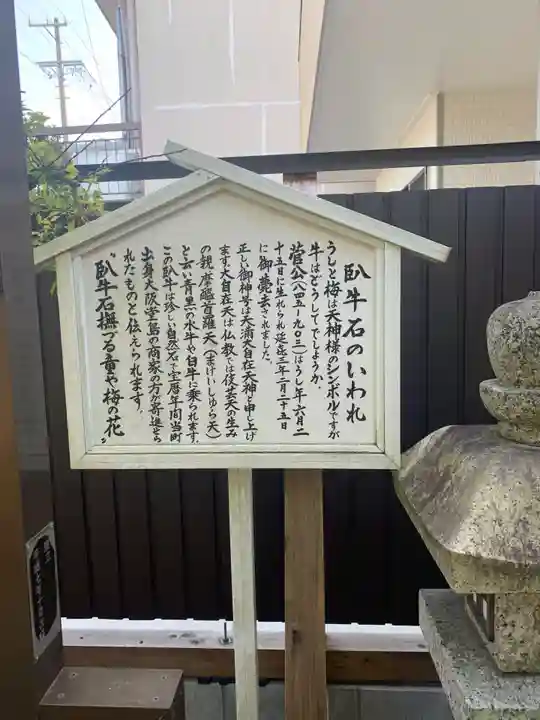 臥牛石のいわれ
うしと梅は天神様のシンボルですが
牛はどうしてでしょうか、
菅公(八四五-九〇三)はうし年六月二
十五日に生れられ延喜三年二月二十五日
に御薨去されました。
正しい御神号は天満大自在天神と申し上げ
ます大自在天は仏教では伎芸天の生み
の親摩醯首羅天(まけいしゆら天)
と云い青黒の水牛や白牛に乗られます、
この臥牛は珍しい自然石で宝暦年間当町
出身大阪堂島の商家の方が寄進せら
れたものと伝えられます、
〝臥牛石撫づる童や梅の花〟